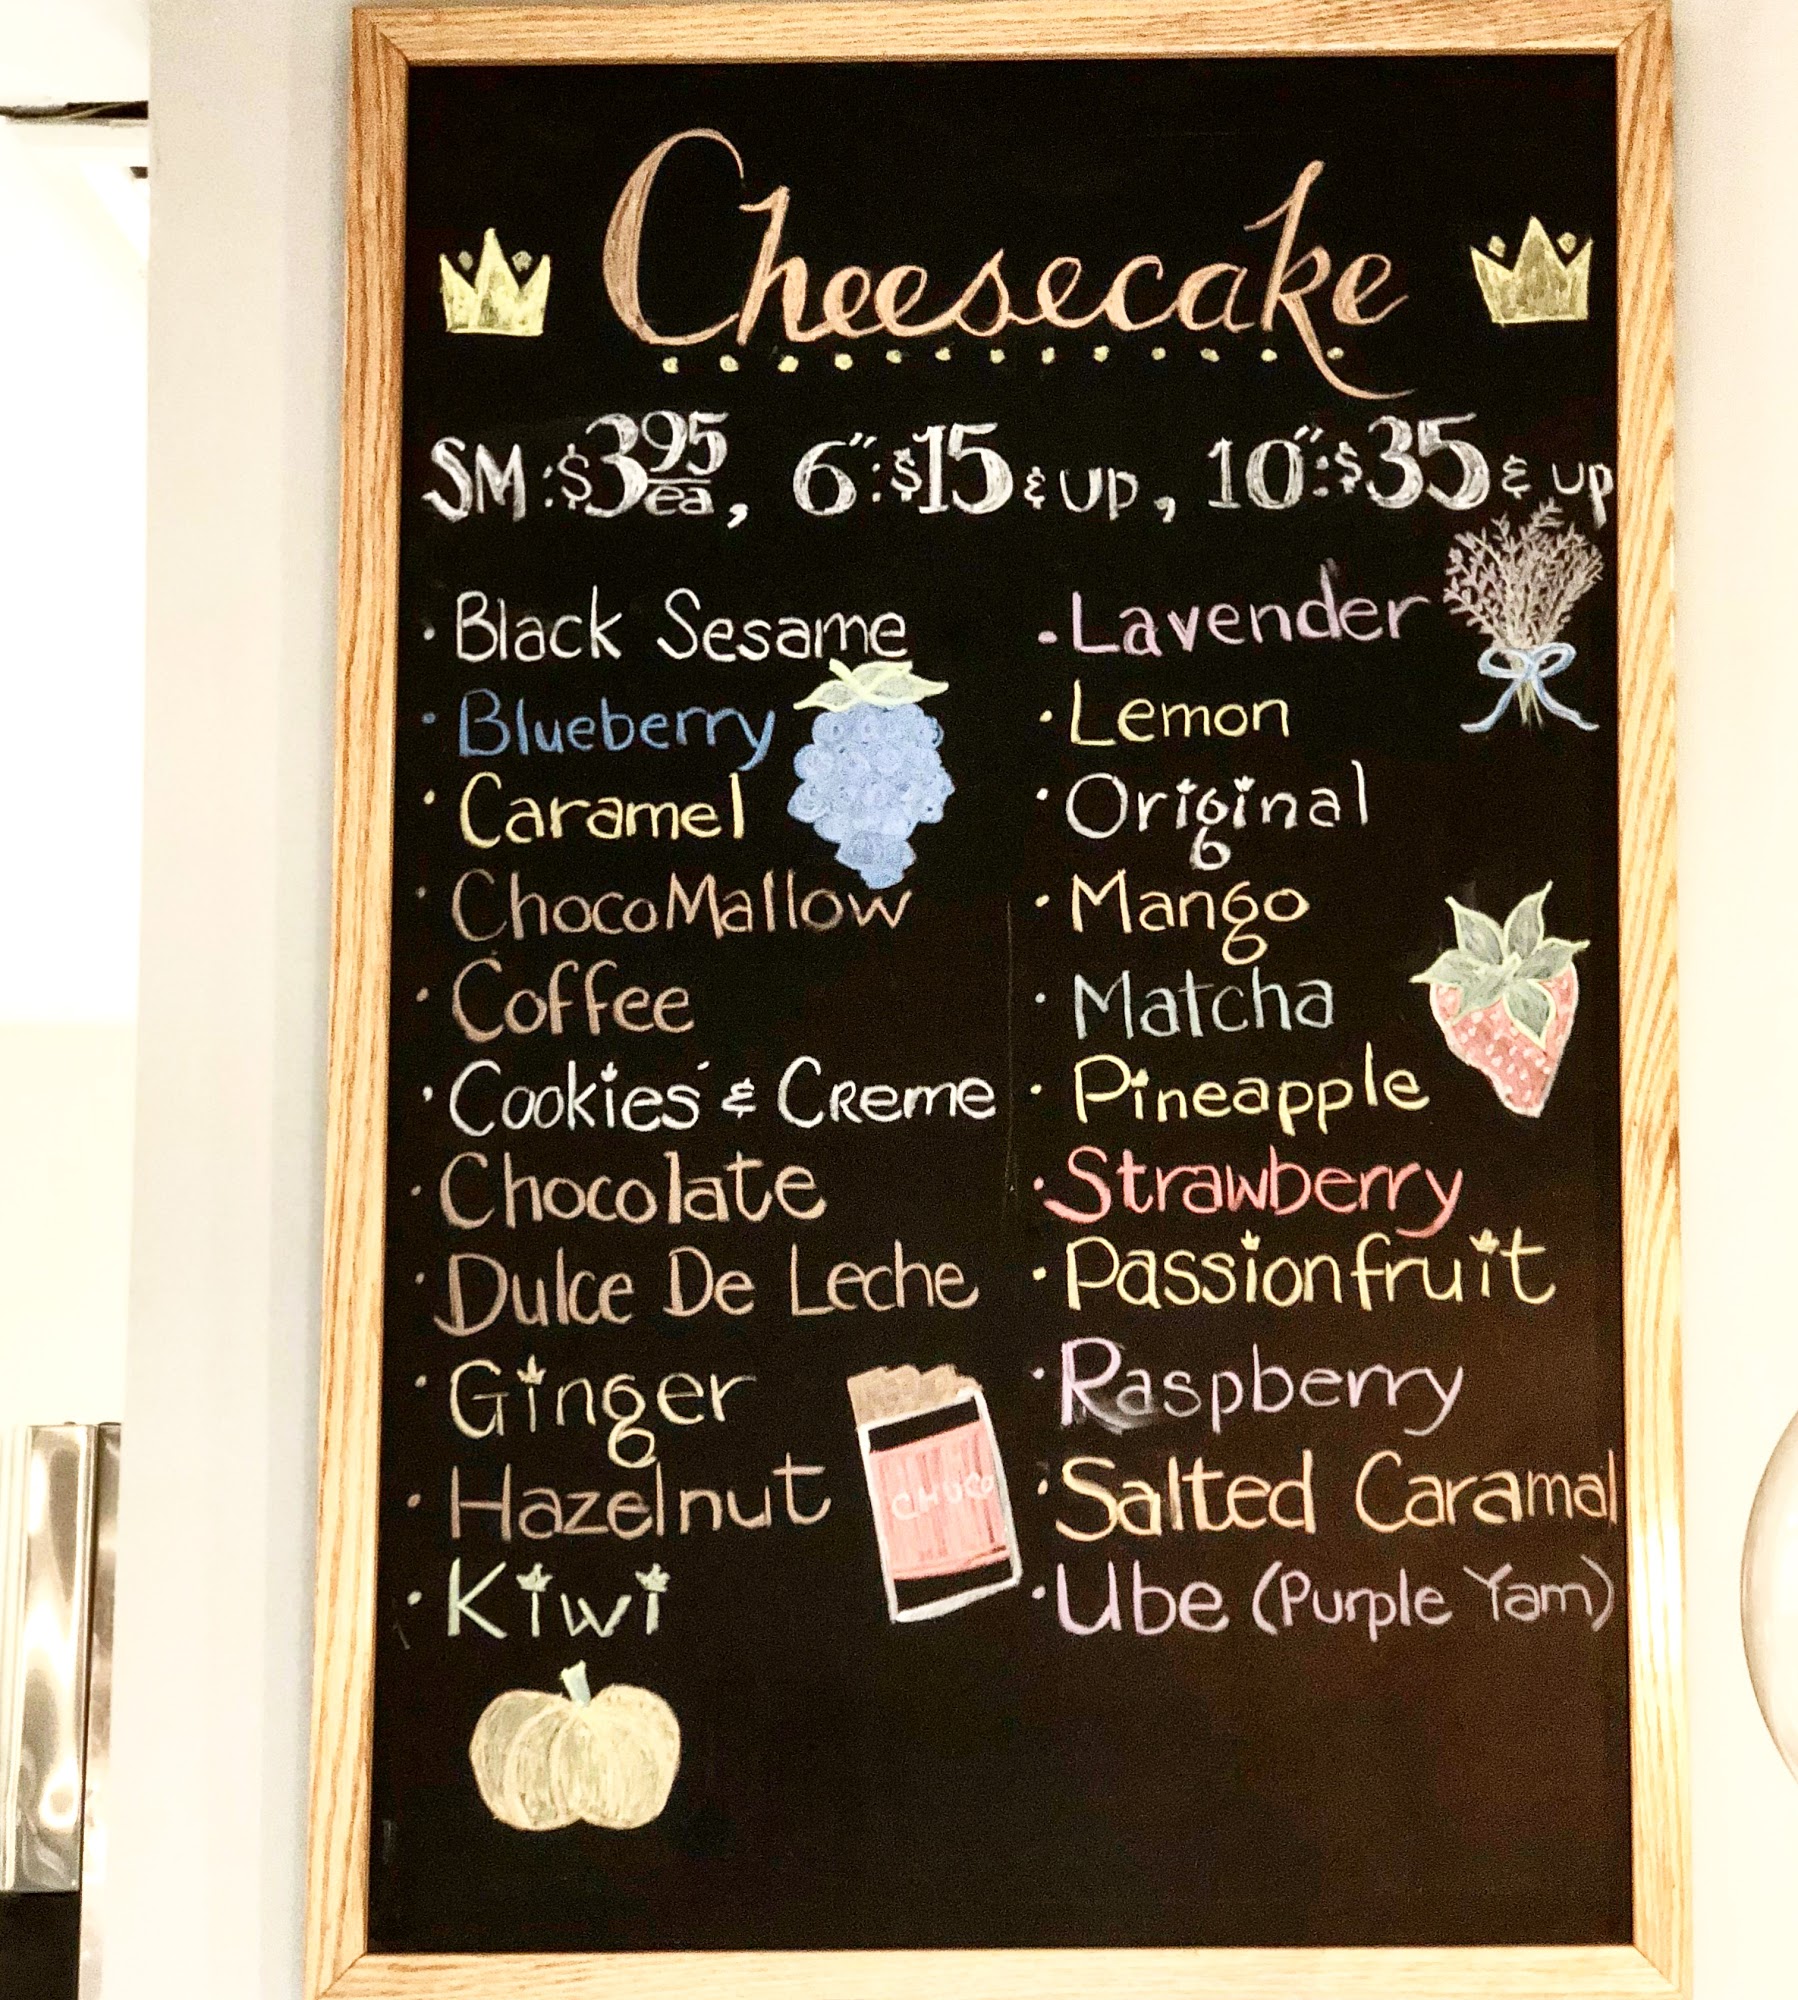 Cheesecake
SM: $3.95 ea, 6": $15 & up, 10": $35 & up
· Black Sesame
· Blueberry
· Caramel
· ChocoMallow
· Coffee
· Cookies & Creme
· Chocolate
· Dulce De Leche
· Ginger
· Hazelnut
· Kiwi
· Lavender
· Lemon
· Original
· Mango
· Matcha
· Pineapple
· Strawberry
· Passionfruit
· Raspberry
· Salted Caramal
· Ube (Purple Yam)
CHOCO